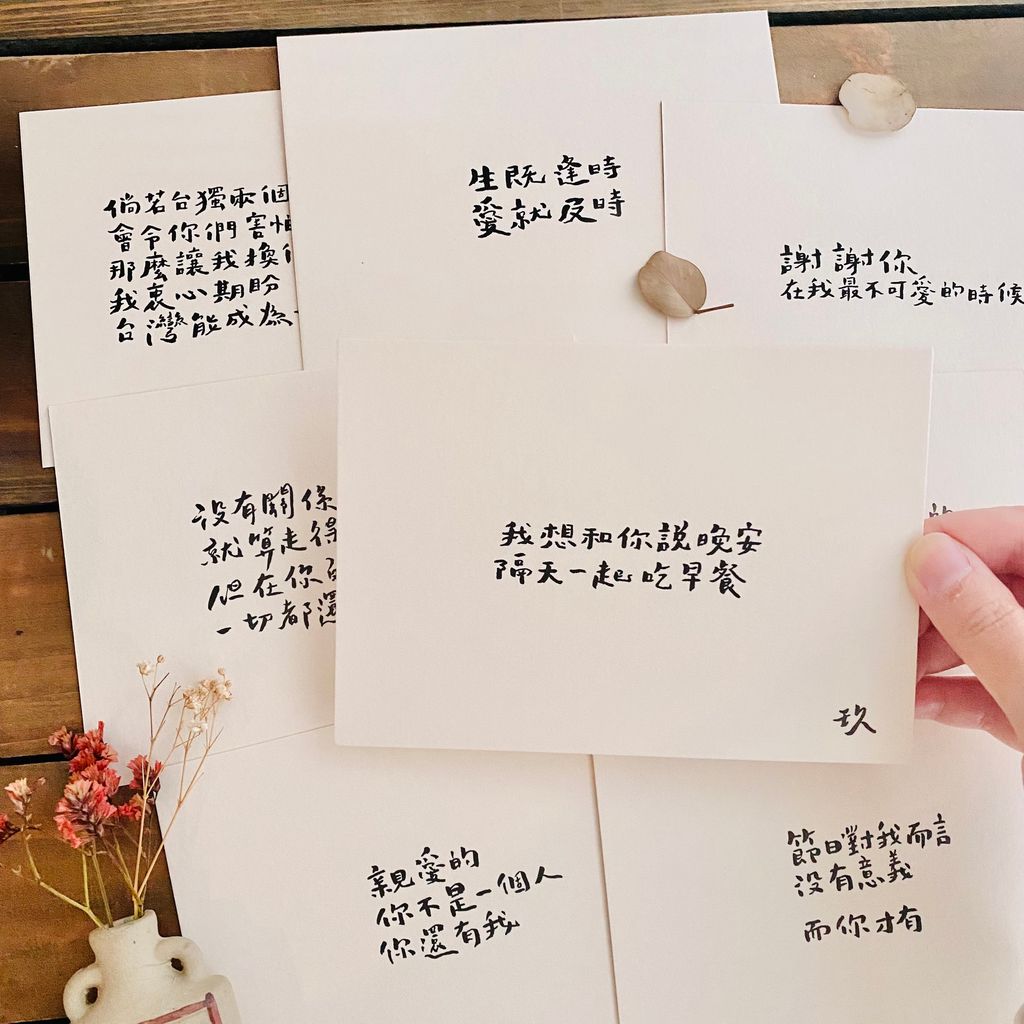 倘若台獨兩個
會令你們害怕
那麼讓我換
我衷心期盼
台灣能成為
生既逢時
愛就及時
謝謝你
在我最不可愛的時候
沒有關係
就算走得
但在你
一切都還
我想和你說晚安
隔天一起吃早餐
玖
親愛的
你不是一個人
你還有我
節日對我而言
沒有意義
而你才有